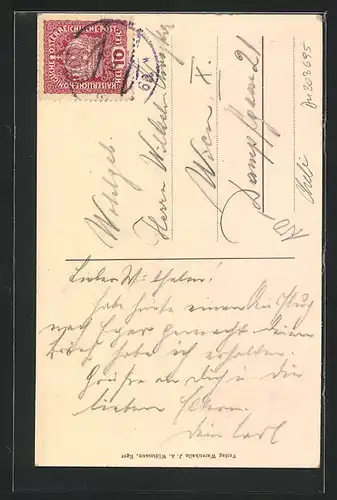 KAISERLICHE KÖN.
10
Wohlgeb.
Herrn Wilhelm
Wien, X.
Dampfgasse 21
Lieber Wilhelm!
Habe heute einen Ausflug
nach Eger gemacht deinen
Brief habe ich erhalten.
Grüße an dich u. die
lieben Eltern.
Dein Karl
Verlag Warenhalle J. A. Widtmann, Eger